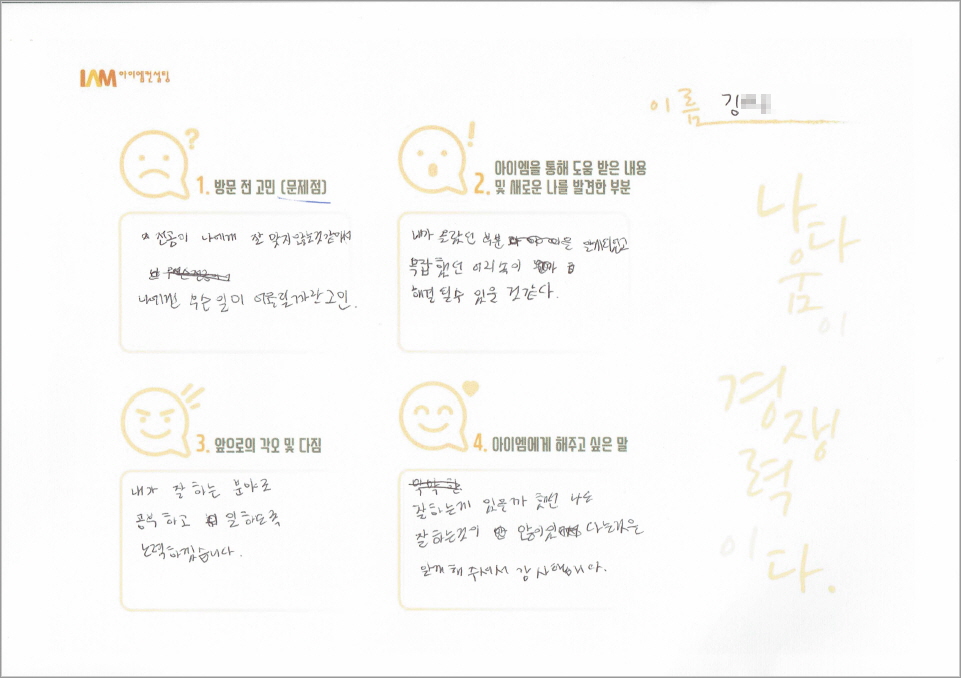 IAM 아이엠컨설팅
이름 김
?
1. 방문 전 고민 (문제점)
전공이 나에게 잘 맞지않는것같아서
나에겐 무슨 일이 어울릴까란 고민.
!
2. 아이엠을 통해 도움 받은 내용
및 새로운 나를 발견한 부분
내가 몰랐던 부분 을 알게되었고
복잡했던 머리속이
해결 될수 있을 것같다.
3. 앞으로의 각오 및 다짐
내가 잘 하는 분야로
공부하고 일하도록
노력하겠습니다.
4. 아이엠에게 해주고 싶은 말
잘하는게 있을까 했던 나도
잘하는것이 많이있 다는것을
알게 해 주셔서 감사합니다.
나다움이
경쟁력이다.